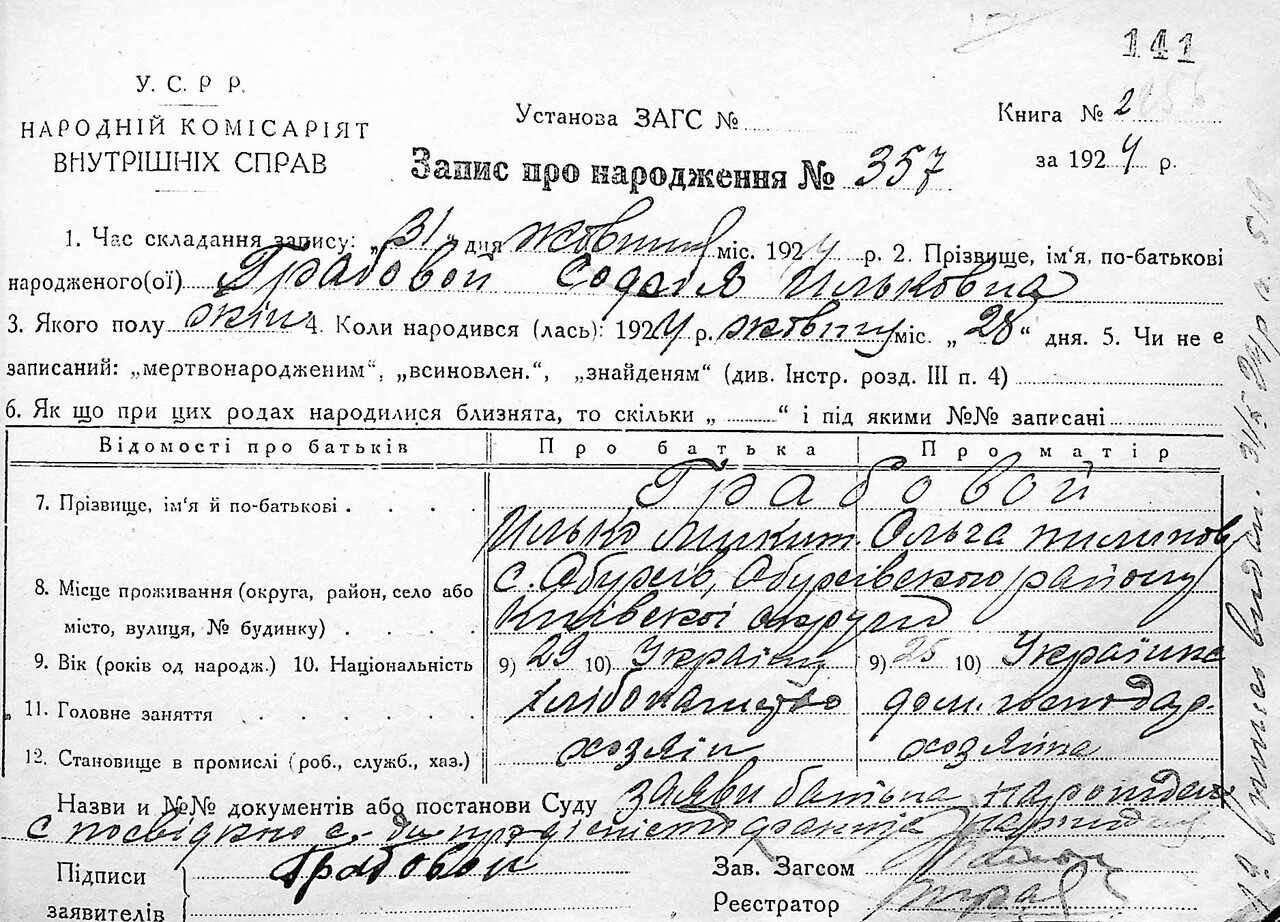 141
У. С. Р Р.
НАРОДНІЙ КОМІСАРІЯТ
ВНУТРІШНІХ СПРАВ
Установа ЗАГС №
Книга № 2
за 1924 р.
Запис про народження № 357
1. Час складання запису: „31“ дня жовтня міс. 1924 р. 2. Прізвище, ім'я, по-батькові
народженого(ої) Грабовой Софія Ильковна
3. Якого полу жін 4. Коли народився (лась): 1924 р. жовтня міс. „28“ дня. 5. Чи не є
записаний: „мертвонародженим“, „всиновлен.“, „знайденям“ (див. Інстр. розд. III п. 4)
6. Як що при цих родах народилися близнята, то скільки „ “ і під якими №№ записані
Відомості про батьків Про батька Про матір
7. Прізвище, ім'я й по-батькові Грабовой
Илько Микит. Ольга Пилипов
8. Місце проживання (округа, район, село або с. Обухів, Обухівского району
місто, вулиця, № будинку) Київскої округи
9. Вік (років од народж.) 10. Національність 9) 29 10) Українц 9) 25 10) Українка
11. Головне заняття хлібопашество дом. господар.
12. Становище в промислі (роб., служб., хаз.) хозяін хозяйка
Назви и №№ документів або постанови Суду заяви батька
Підписи
заявителів
Грабовой
Зав. Загсом
Реєстратор